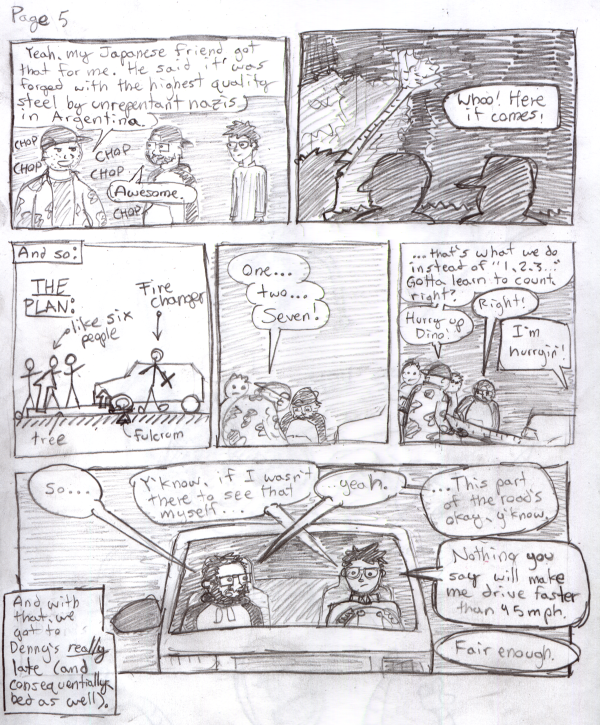 Page 5
Yeah, my Japanese friend got
that for me. He said it was
forged with the highest quality
steel by unrepentant nazis
in Argentina.
CHOP
CHOP
CHOP
CHOP
Awesome.
CHOP
Whoo! Here
it comes!
And so:
THE
PLAN:
Fire
changer
like six
people
tree
fulcrum
One...
two...
Seven!
...that's what we do
instead of "1, 2, 3..."
Gotta learn to count,
right?
Right!
Hurry up
Dino!
I'm
hurryin'!
So...
Y'know, if I wasn't
there to see that
myself...
...yeah.
...This part
of the road's
okay, y'know.
Nothing you
say will make
me drive faster
than 45 mph.
Fair enough.
And with
that, we
got to
Denny's really
late (and
consequentially,
bed as well).